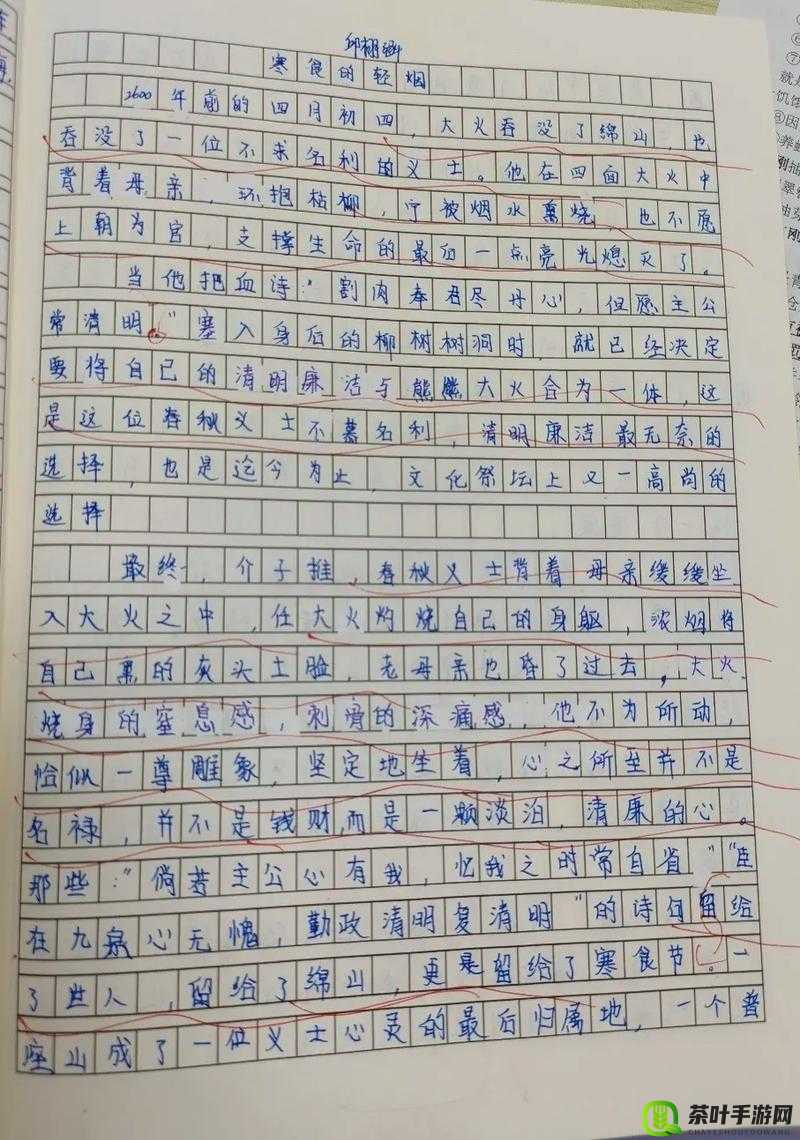 邱栩
寒食的轻烟
2600年前的四月初四，大火吞没了绵山，也
吞没了一位不求名利的义士。他在四面大火中
背着母亲，环抱枯柳，宁被烟火熏烧，也不愿
上朝为官，支撑生命的最后一点亮光熄灭了。
当他把血诗："割肉奉君尽丹心，但愿主公
常清明。"塞入身后的柳树树洞时，就已经决定
要将自己的清明廉洁与熊熊大火合为一体，这
是这位春秋义士不慕名利，清明廉洁最无奈的
选择，也是迄今为止，文化祭坛上又一高尚的
选择
最终，介子推，春秋义士背着母亲缓缓坐
入大火之中，任大火灼烧自己的身躯，浓烟将
自己熏的灰头土脸，老母亲也昏了过去，大火
烧身的窒息感，刺骨的深痛感，他不为所动，
恰似一尊雕象，坚定地坐着，心之所至并不是
名禄，并不是钱财，而是一颗淡泊，清廉的心。
那些："倘若主公心有我，忆我之时常自省""臣
在九泉心无愧，勤政清明复清明"的诗句留给
了世人，留给了绵山，更是留给了寒食节。一
座山成了一位义士心灵的最后归属地，一个普
⑥
⑦
就
饥饿
⑧因
养
刚抽
翠
刚
茶叶手游网
CHAYESHOUYOUWANG